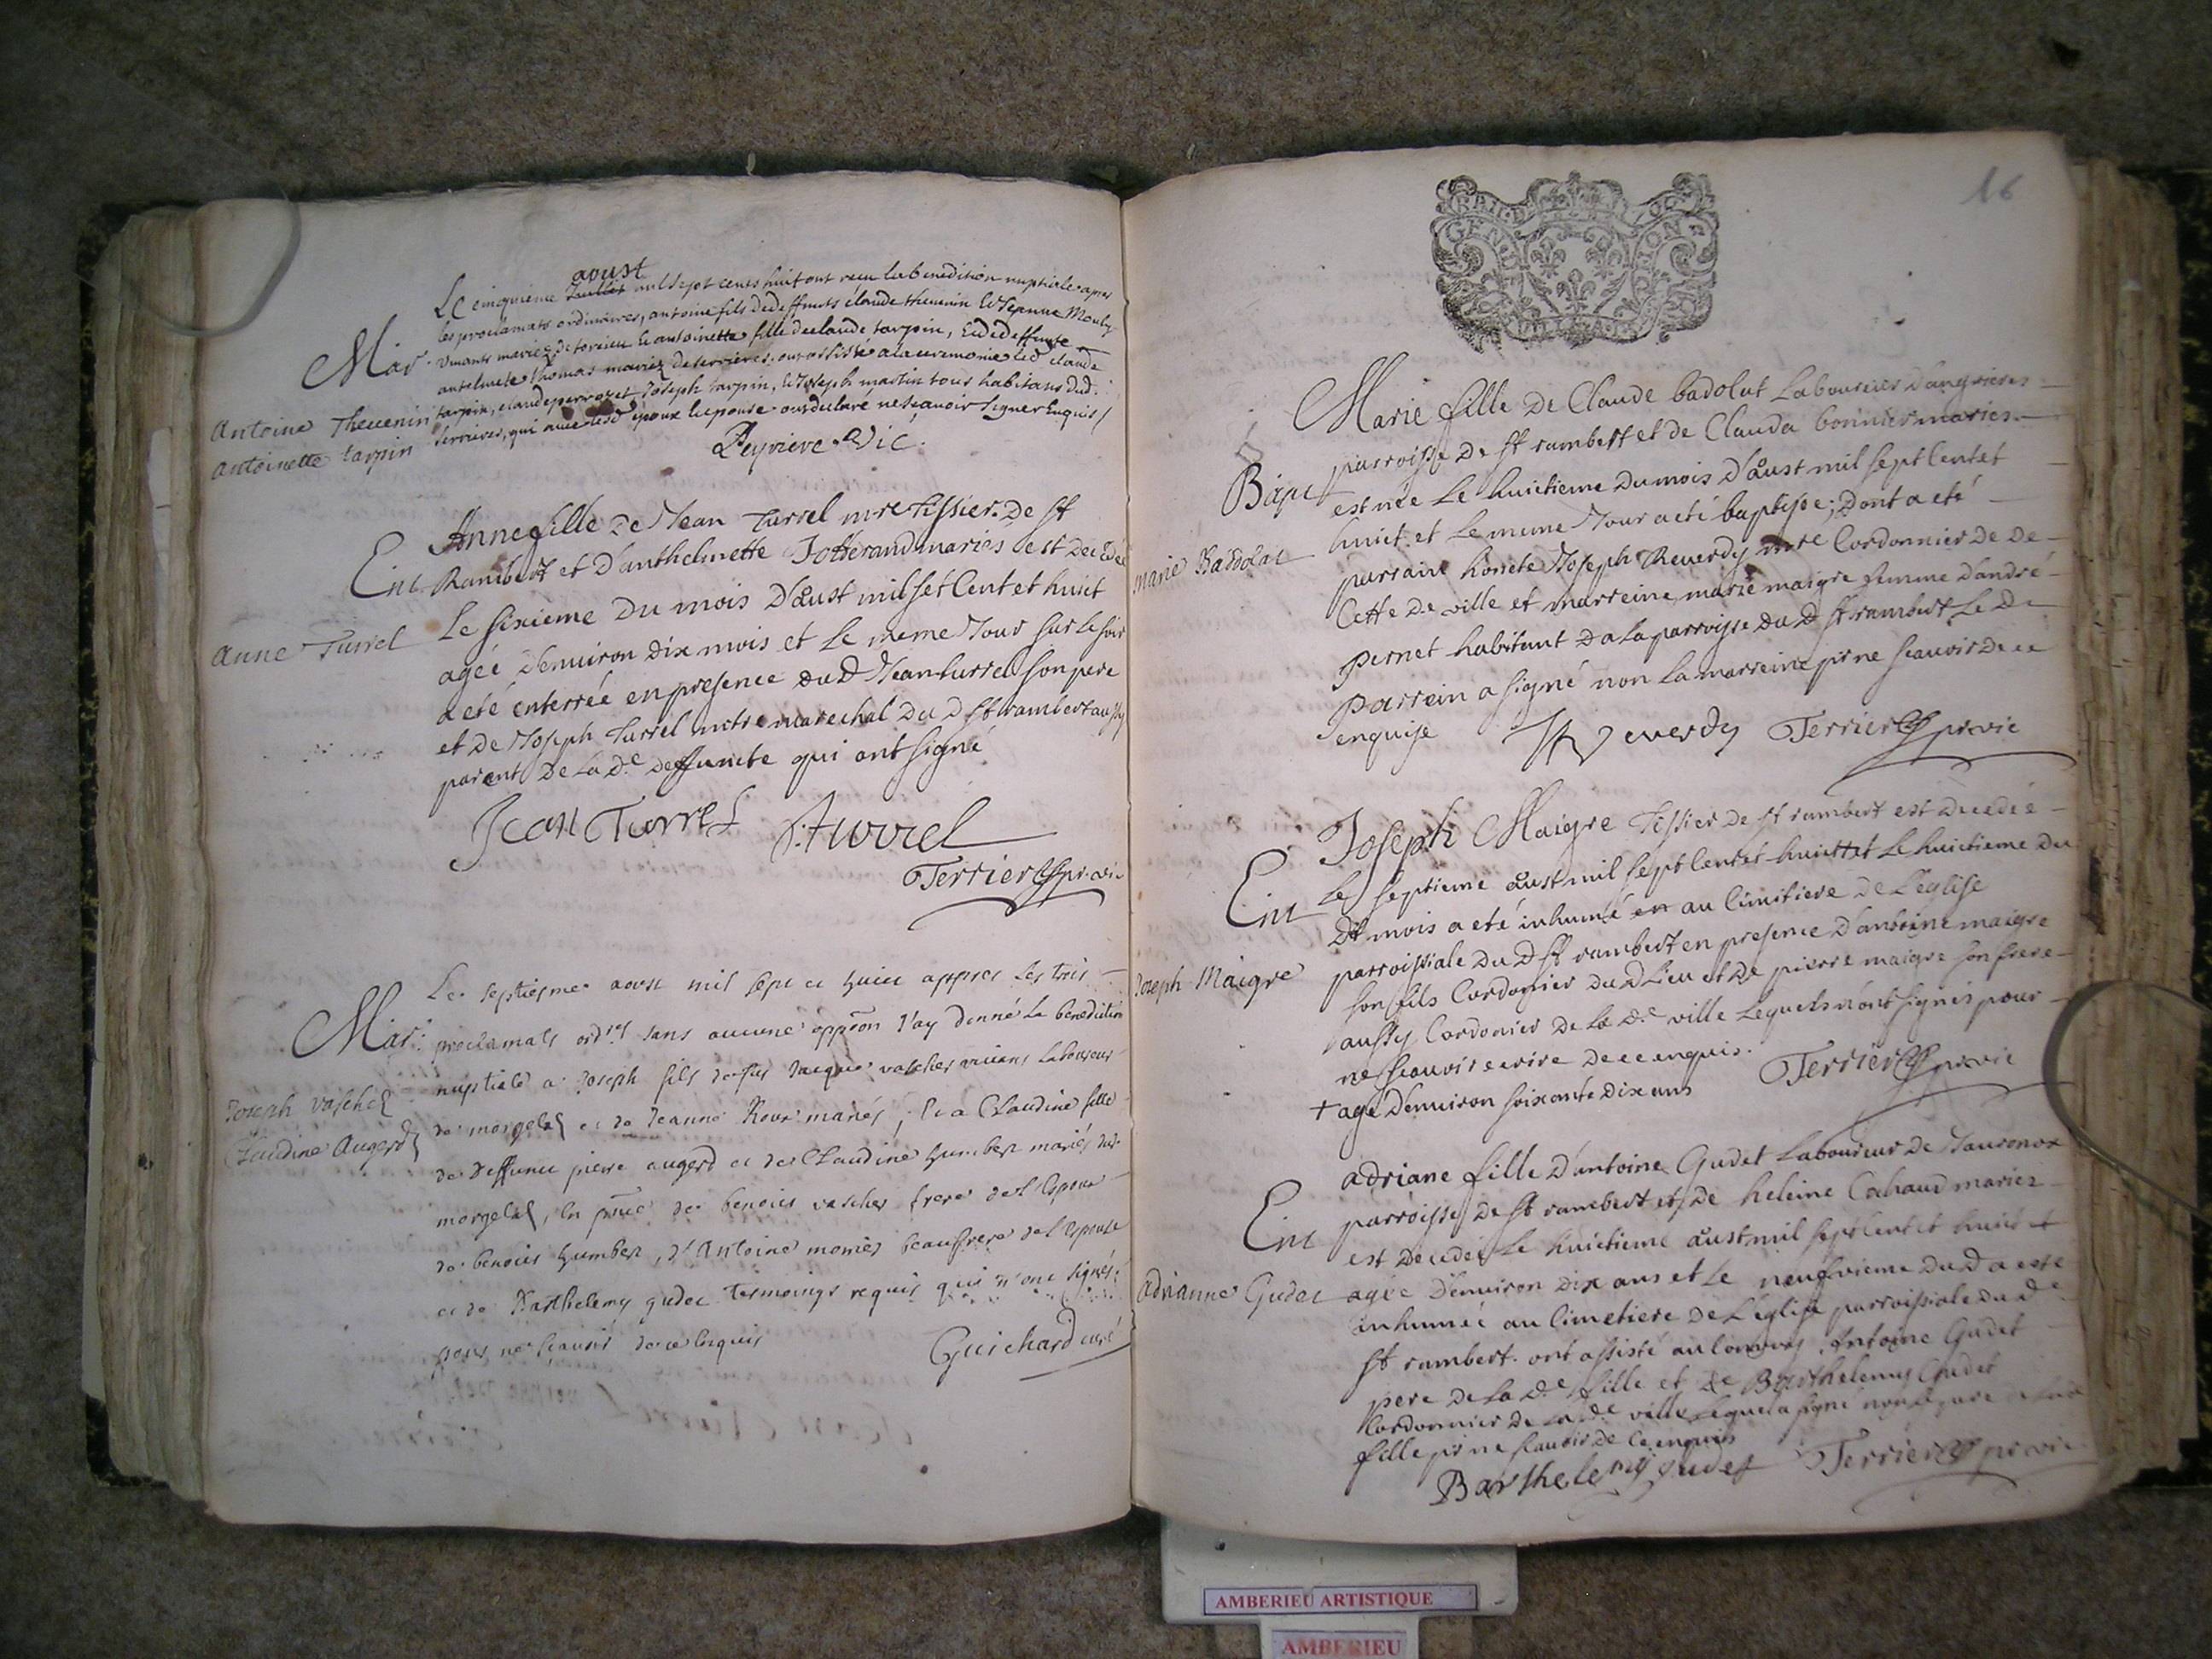 aoust
Le cinquieme Juillet mil sept cents huit ont reçu la benediction nuptiale apres
les proclamats ordinaires, antoine fils de deffunts claude thevenin et Jeanne Mouly
vivants mariez de torcieu et antoinette fille de claude tarpin, et de deffunte
antelmete thomas mariez de serrieres. ont assisté a la ceremonie led claude
tarpin, claude perrozet Joseph tarpin, et Joseph martin tous habitans dud.
serrieres, qui avec lesd epoux et epouse ont declaré ne scavoir signer Enquis
Mar.
Antoine Thevenin
Antoinette tarpin
Peyrieve Vic.
Anne fille de Jean Turrel mre tissier de st
Rambert et D'anthelmette Jotterand mariés est decedée
Le sixieme Du mois D'aust mil set Cent et huict
agée D'environ dix mois et le meme Jour sur le soir
a eté enterrée en presence dud Jean turrel son pere
et de Joseph Turrel mtre marechal du D st rambert aussy
parent De la De Deffuncte qui ont signé
Ent
Anne Turrel
Jean Turrel J. turrel
Terrier pr. vic
Le septiesme aoust mil sept et huict appres les trois
proclamats ordres sans aucune oppõon J'ay donné la benediction
nuptiale a Joseph fils de fus Jacques vascher vivans laboureur
de morgelas et de Jeanne Roux mariés; Et a Claudine fille
de deffunct pierre augerd et de Claudine humbert mariés dud.
morgelas, en pñce de benoict vascher frere de l'Espoux
de benoict humbert, d'Antoine monier beaufrere de l'Espouse
et de Barthelemy gudet tesmoings requis qui n'ont signés
pour ne scavoir de ce Enquis
Guichard curé
Mar.
Joseph vascher
Claudine Augerd
16
GEN ION
Marie fille De Claude badolat Laboureur d'angrieres
parroisse De st rambert et de Clauda bonnier maries
est née Le huictieme du mois D'aust mil sept Cent et
huict et Le meme Jour a eté baptisée; Dont a eté
parrain honete Joseph Reverdy mre Cordonnier De De
Cette De ville et marreine marie maigre femme d'andré
pernet habitant De la parroisse du D st rambert Le D
parrein a signé non la marreine pr ne scavoir De ce
enquise
JReverdy Terrier pr. vic
Bapt
marie Baddolat
Joseph Maigre tissier de st rambert est decedé
Le septieme aust mil sept Cent et huict et Le huictieme Du
Dt mois a eté inhumé en au Cimitiere De L'eglise
parroissiale Du D st rambert en presence D'antoine maigre
son fils Cordonier du D Lieu et De pierre maigre son frere
aussy Cordonier De la De ville Lequels n'ont signés pour
ne scavoir ecrire de ce enquis.
+ agé D'environ soixante Dix ans
Terrier pr. vic
Ent
Joseph Maigre
adriane fille D'antoine Gudet Laboureur De Javornoz
parroisse De st rambert et De heleine Cahaud mariez
est decedée Le huictieme aust mil sept Cent et huict et
agée D'environ Dix ans et le neufvieme Du D a esté
inhumée au Cimetiere De L'eglise parroissiale Du De
st rambert. ont assisté au Convoy Antoine Gudet
pere De la De fille et De Barthelemy Gudet
Cordonnier De la De ville Lequel a signé non le pere
fille pr ne scavoir De Ce enquis
Barthelemy gudet Terrier pr. vic
Ent
adrianne Gudet
AMBERIEU ARTISTIQUE
AMBERIEU